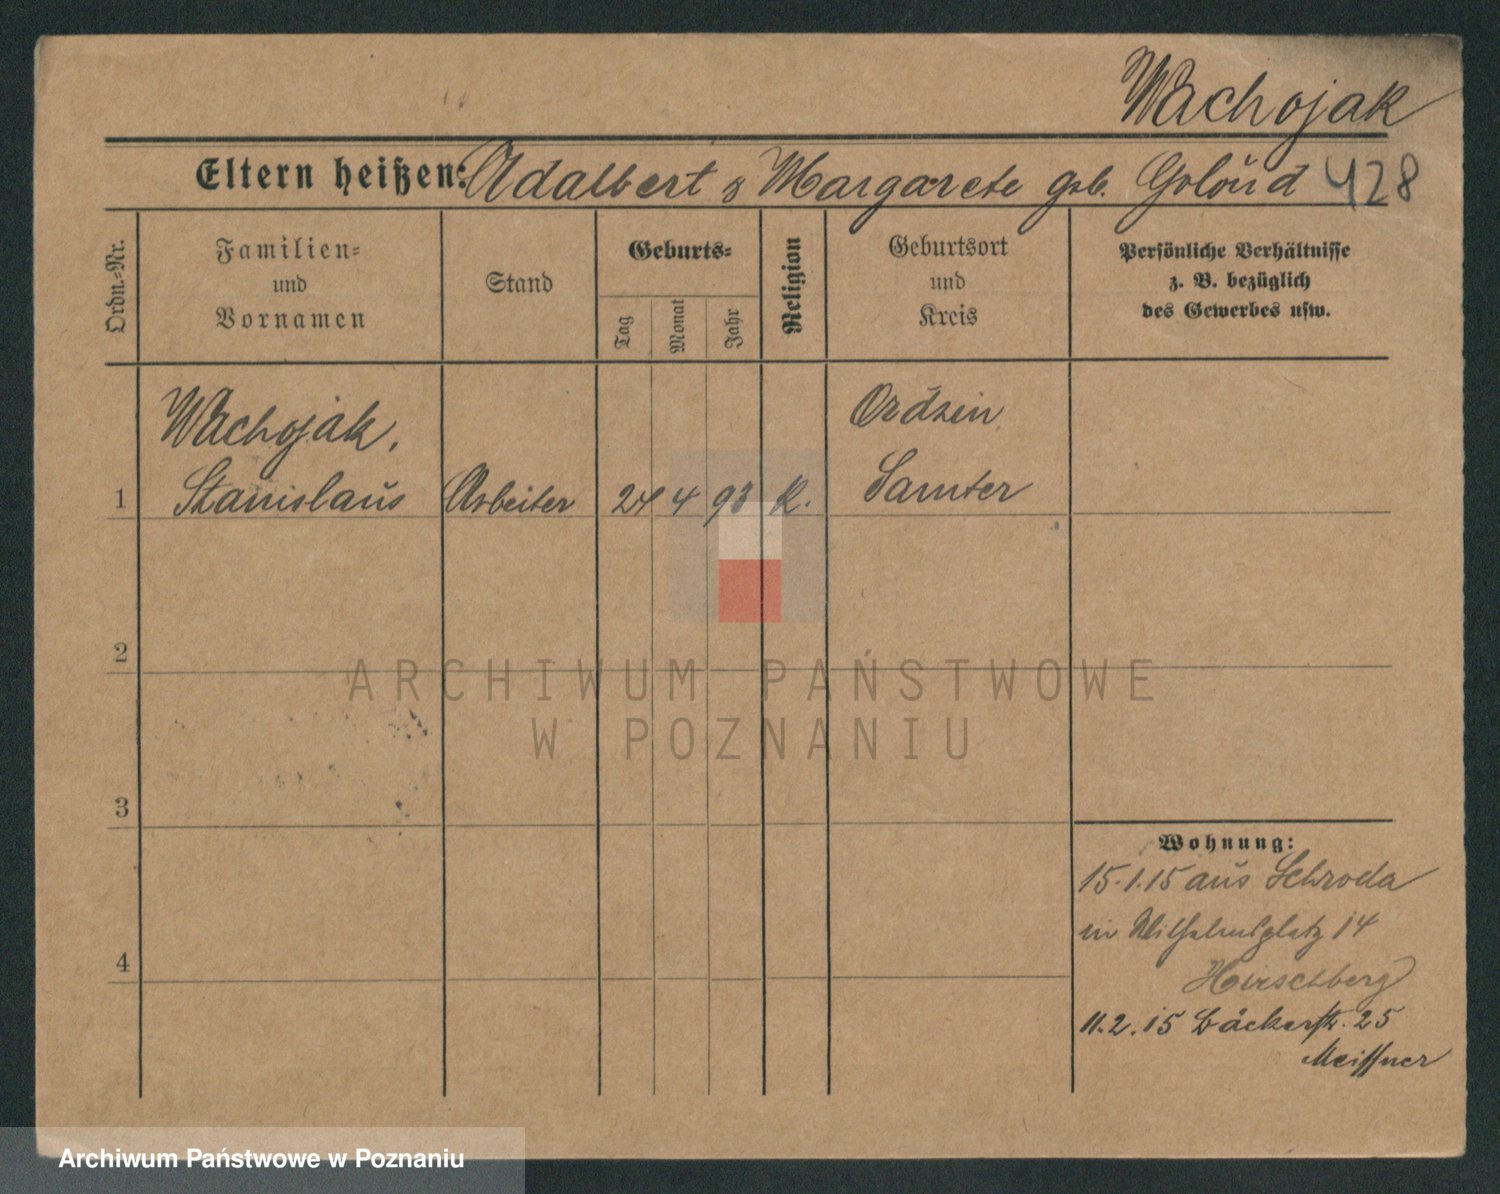 Wachojak
Eltern heißen: Adalbert & Margarete geb. Goloud 428
Ordn.-Nr.
Familien-
und
Vornamen
Stand
Geburts-
Tag
Monat
Jahr
Religion
Geburtsort
und
Kreis
Persönliche Verhältnisse
z. B. bezüglich
des Gewerbes usw.
Wachojak,
Ordzin
1 Stanislaus Arbeiter 24 4 93 K. Samter
2
ARCHIWUM PAŃSTWOWE
W POZNANIU
3
Wohnung:
15.1.15 aus Schroda
in Wilhelmsplatz 14
4
Hirschberg
11.2.15 Bäckerstr. 25
Meissner
Archiwum Państwowe w Poznaniu